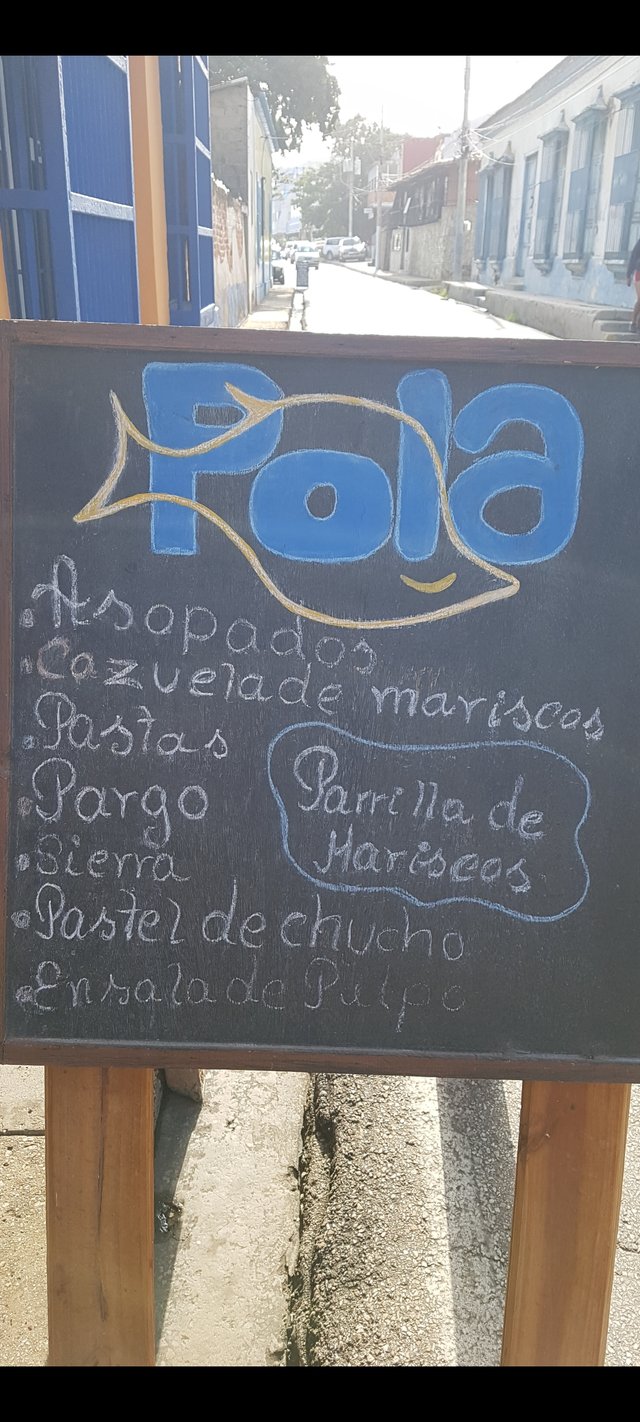 Pola
. Asopados
. Cazuela de mariscos
. Pastas
. Pargo
. Sierra
. Pastel de chucho
. Ensalada de Pulpo
Parrilla de
Mariscos